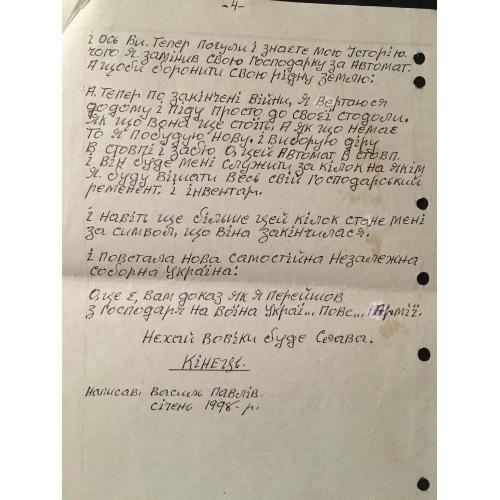 -4-
і Ось Ви. Тепер почули і знаєте мою Історію.
чого Я. замінив свою Господарку за Автомат.
А щоби боронити свою рідну землю:
А. Тепер По закінчені Війни, Я Вертаюся
додому і Піду Просто до своєї стодоли.
Як що Вона ще стоїть, А як що немає
То Я Побудую Нову. і Виборую діру
В стовпі і забю О, цей Автомат В стовп.
і Він буде мені служити за кілок на Якім
Я. буду Вішати Весь свій Господарський
ременент, і інвентар.
і навіть ще більше цей кілок стане мені
за символ, що Віна закінчилася.
і Повстала Нова Самостійна Незалежна
соборна Україна:
О, це Є, Вам доказ Як Я Перейшов
з Господаря На Воїна Украї... Повс... Армії.
Нехай Вовіки буде Слава.
Кінець.
Написав: Василь Павлів.
січень 1998-р.